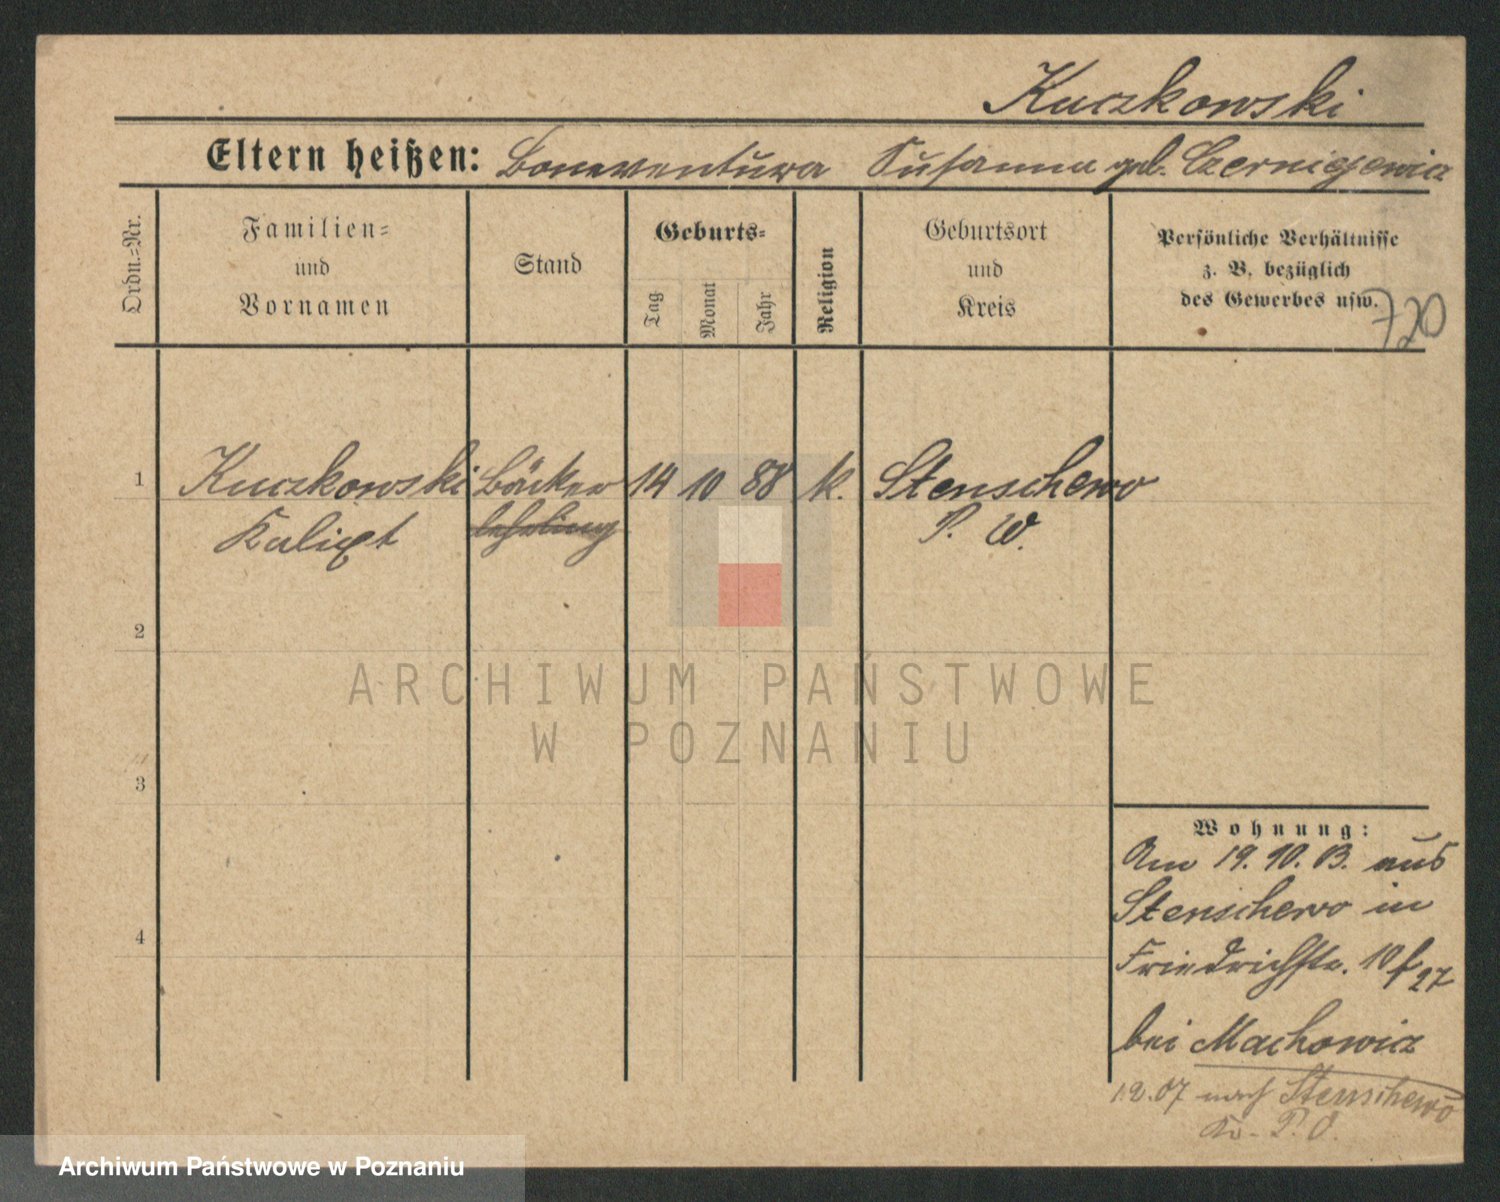 Kuczkowski
Eltern heißen: Bonaventura Susanna geb. Czerniejewicz
Ordn.-Nr.
Familien-
und
Vornamen
Stand
Geburts-
Tag
Monat
Jahr
Religion
Geburtsort
und
Kreis
Persönliche Verhältnisse
z. B. bezüglich
des Gewerbes usw.
720
1 Kuczkowski Bäcker 14 10 88 k. Stenschewo
Kalixt lehrling P. W.
2
3
4
Wohnung:
Am 19. 10. 03. aus
Stenschewo in
Friedrichstr. 10 27
bei Machowicz
1.2.07 nach Stenschewo
Kr. P. O.
ARCHIWUM PAŃSTWOWE
W POZNANIU
Archiwum Państwowe w Poznaniu